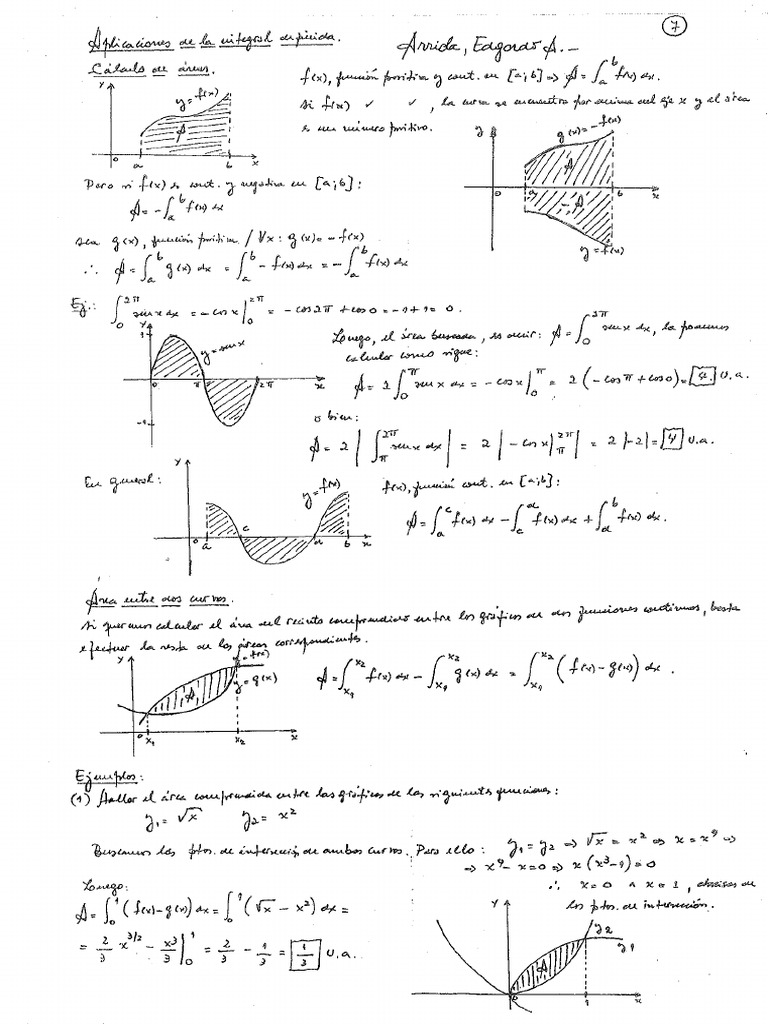 7
Aplicaciones de la integral definida.
Arrida, Edgardo A.-
Cálculo de áreas.
f(x), función positiva y cont. en [a;b] ⇒ A = ∫_a^b f(x) dx.
Si f(x) ✓ ✓, la curva se encuentra por encima del eje x y el área
es un número positivo.
y
y=f(x)
A
0
a
b
x
y
g(x)=-f(x)
A
0
a
b
x
-A
y=f(x)
Pero si f(x) es cont. y negativa en [a;b]:
A = -∫_a^b f(x) dx
sea g(x), función positiva / ∀x: g(x) = -f(x)
∴ A = ∫_a^b g(x) dx = ∫_a^b -f(x) dx = -∫_a^b f(x) dx
Ej.: ∫_0^{2π} sen x dx = -cos x |_0^{2π} = -cos 2π + cos 0 = -1+1 = 0.
y
1
y=sen x
0
π
2π
x
-1
Luego, el área buscada, es decir: A = ∫_0^{2π} sen x dx, la podemos
calcular como sigue:
A = 2 ∫_0^π sen x dx = -cos x |_0^π = 2 (-cos π + cos 0) = 4 u.a.
o bien:
A = 2 | ∫_π^{2π} sen x dx | = 2 | -cos x |_π^{2π} | = 2 |-2| = 4 u.a.
En general:
y
y=f(x)
0
a
c
d
b
x
f(x), función cont. en [a;b]:
A = ∫_a^c f(x) dx - ∫_c^d f(x) dx + ∫_d^b f(x) dx.
Área entre dos curvas.
Si queremos calcular el área del recinto comprendido entre los gráficos de dos funciones continuas, basta
efectuar la resta de las áreas correspondientes.
y
y=f(x)
y=g(x)
A
0
x1
x2
x
A = ∫_{x1}^{x2} f(x) dx - ∫_{x1}^{x2} g(x) dx = ∫_{x1}^{x2} (f(x)-g(x)) dx.
Ejemplos:
(1) Hallar el área comprendida entre las gráficas de las siguientes funciones:
y1 = √x y2 = x²
Buscamos los ptos. de intersección de ambas curvas. Para ello: y1 = y2 ⇒ √x = x² ⇒ x = x⁴ ⇒
⇒ x⁴ - x = 0 ⇒ x(x³-1) = 0
∴ x=0 ∧ x=1, abscisas de
los ptos. de intersección.
Luego:
A = ∫_0^1 (f(x)-g(x)) dx = ∫_0^1 (√x - x²) dx =
= 2/3 x^{3/2} - x³/3 |_0^1 = 2/3 - 1/3 = 1/3 u.a.
y
y2
y1
A
0
1
x